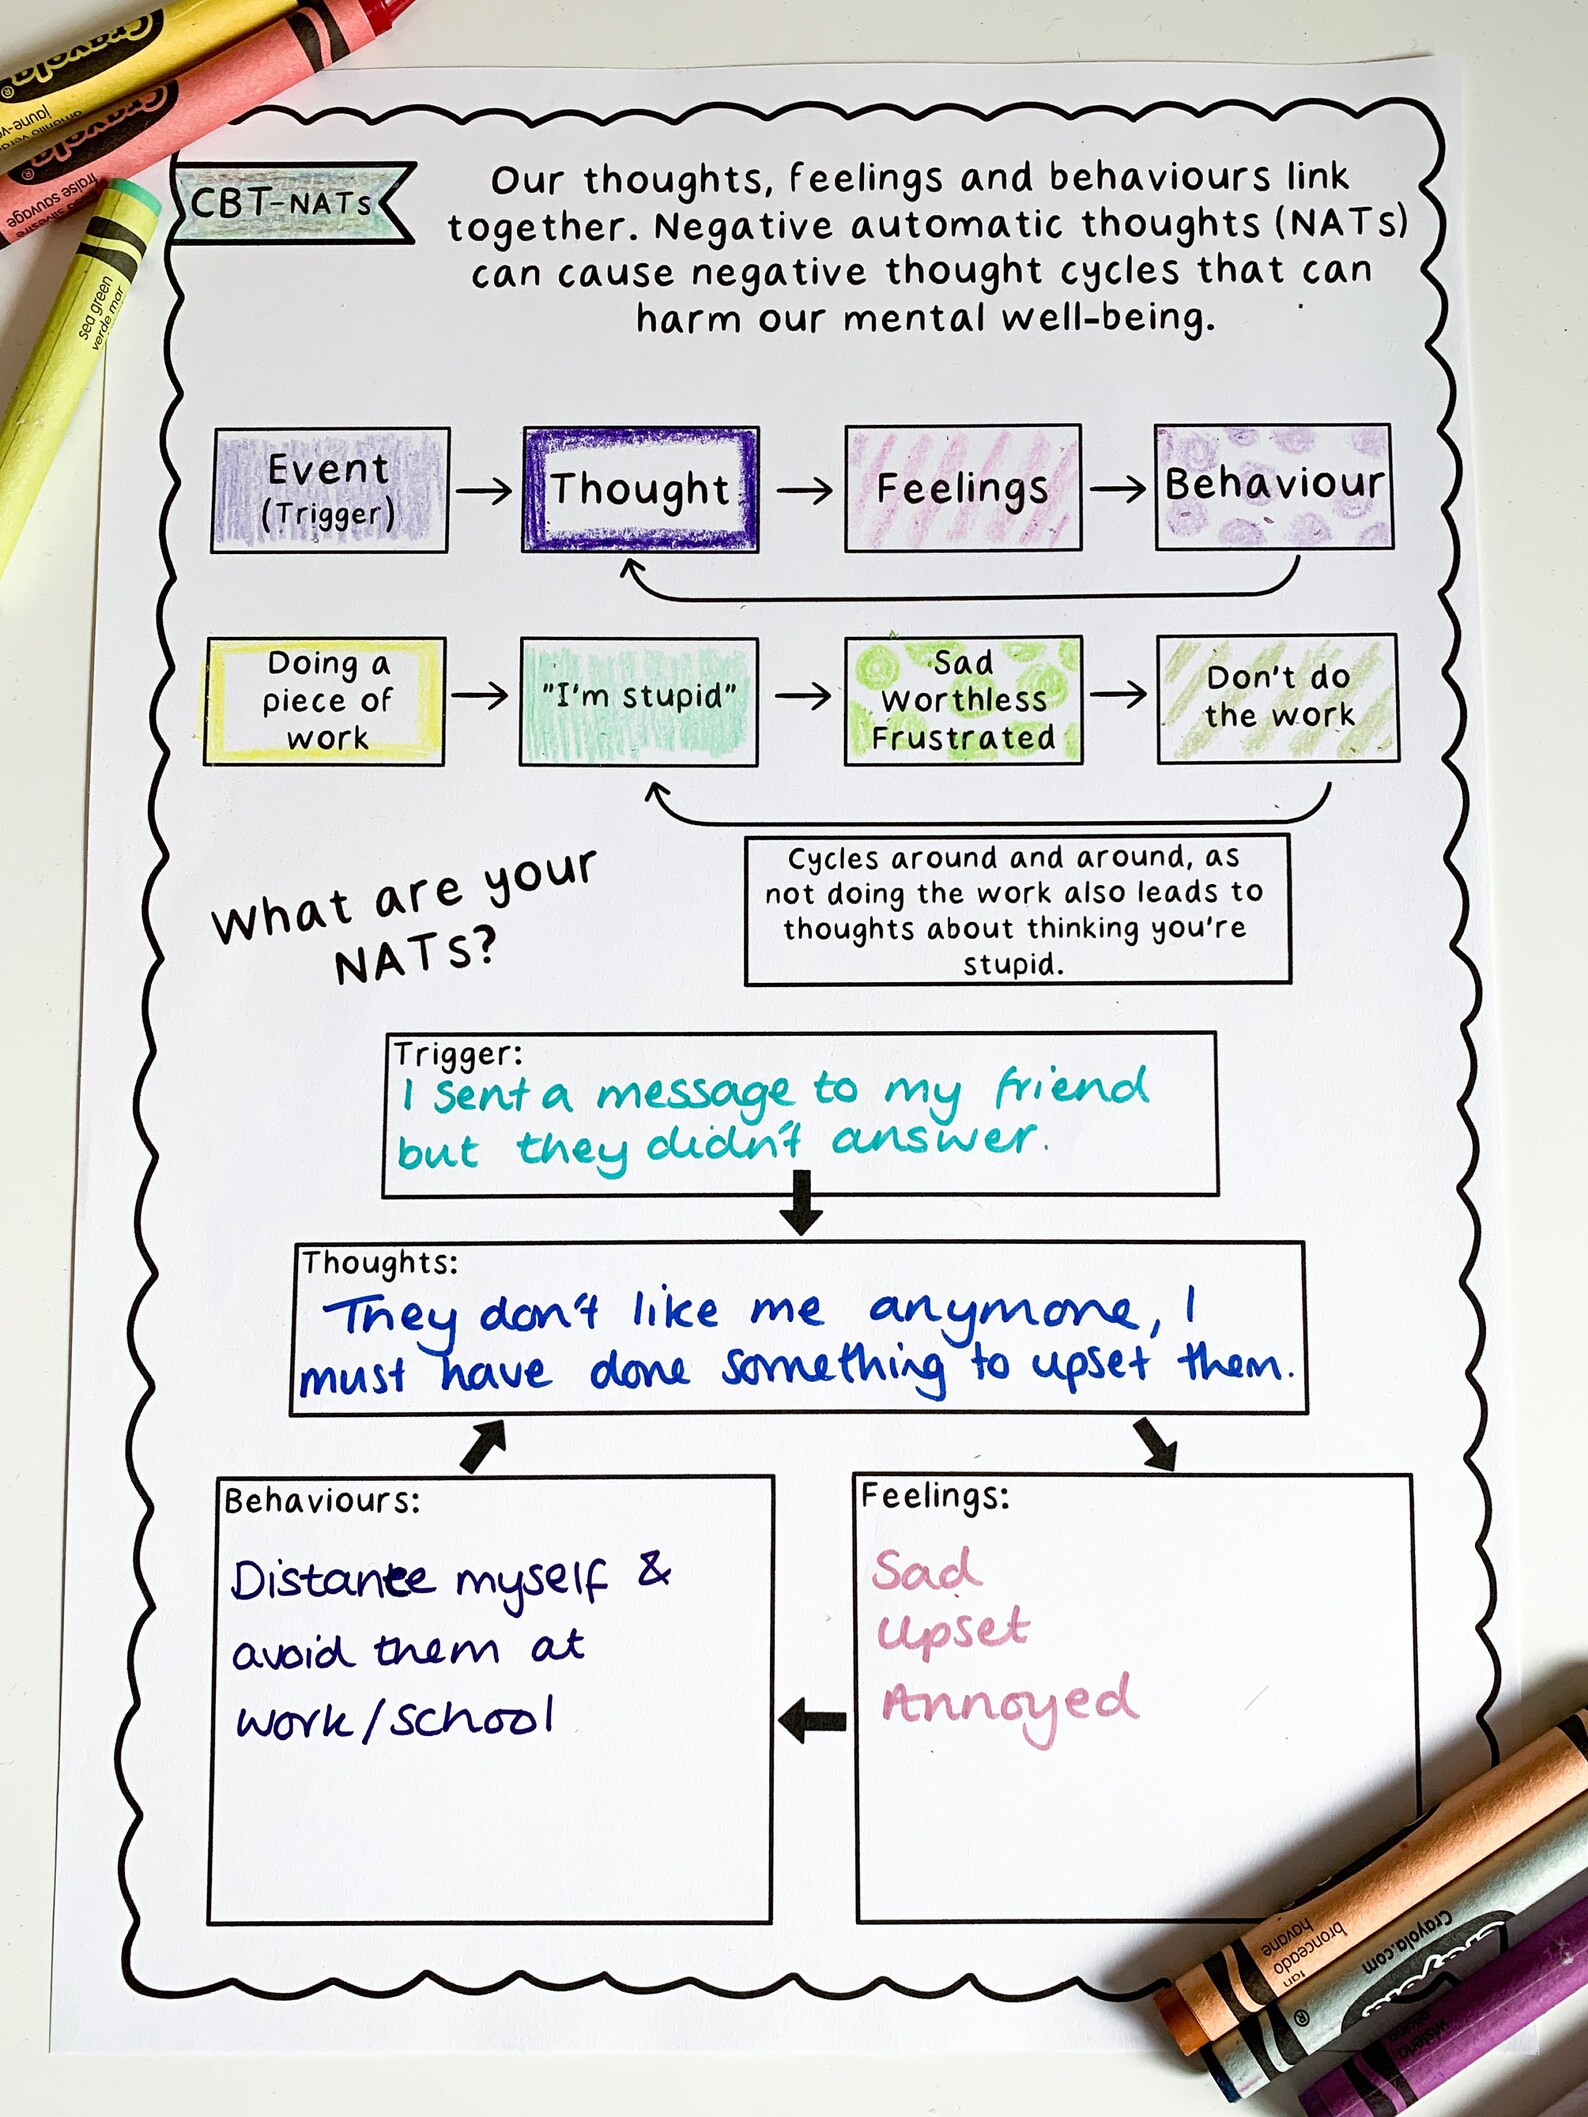 Crayola
jaune-ve
amarillo verde
Crayola
fraise sauvage
sea green
verde mar
CBT-NATs
Our thoughts, feelings and behaviours link
together. Negative automatic thoughts (NATs)
can cause negative thought cycles that can
harm our mental well-being.
Event
(Trigger)
Thought
Feelings
Behaviour
Doing a
piece of
work
"I'm stupid"
Sad
Worthless
Frustrated
Don't do
the work
Cycles around and around, as
not doing the work also leads to
thoughts about thinking you're
stupid.
What are your
NATs?
Trigger:
I sent a message to my friend
but they didn't answer.
Thoughts:
They don't like me anymone, I
must have done something to upset them.
Behaviours:
Distance myself &
avoid them at
work/school
Feelings:
Sad
Upset
Annoyed
tan
bronceado
havane
Crayola.com
wisteria